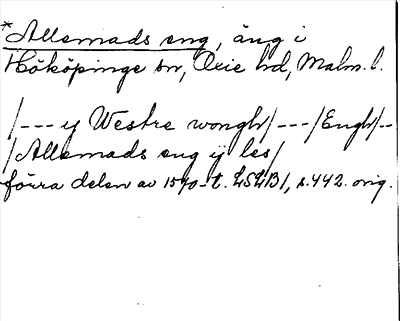 *Allemads eng, äng i
Hököpinge sn, Oxie hd, Malm. l.
/--- y Westre wongh/---/Engh/--
/Allemads eng ij les/
förra delen av 1570-t. LSLB1, s.442. orig.